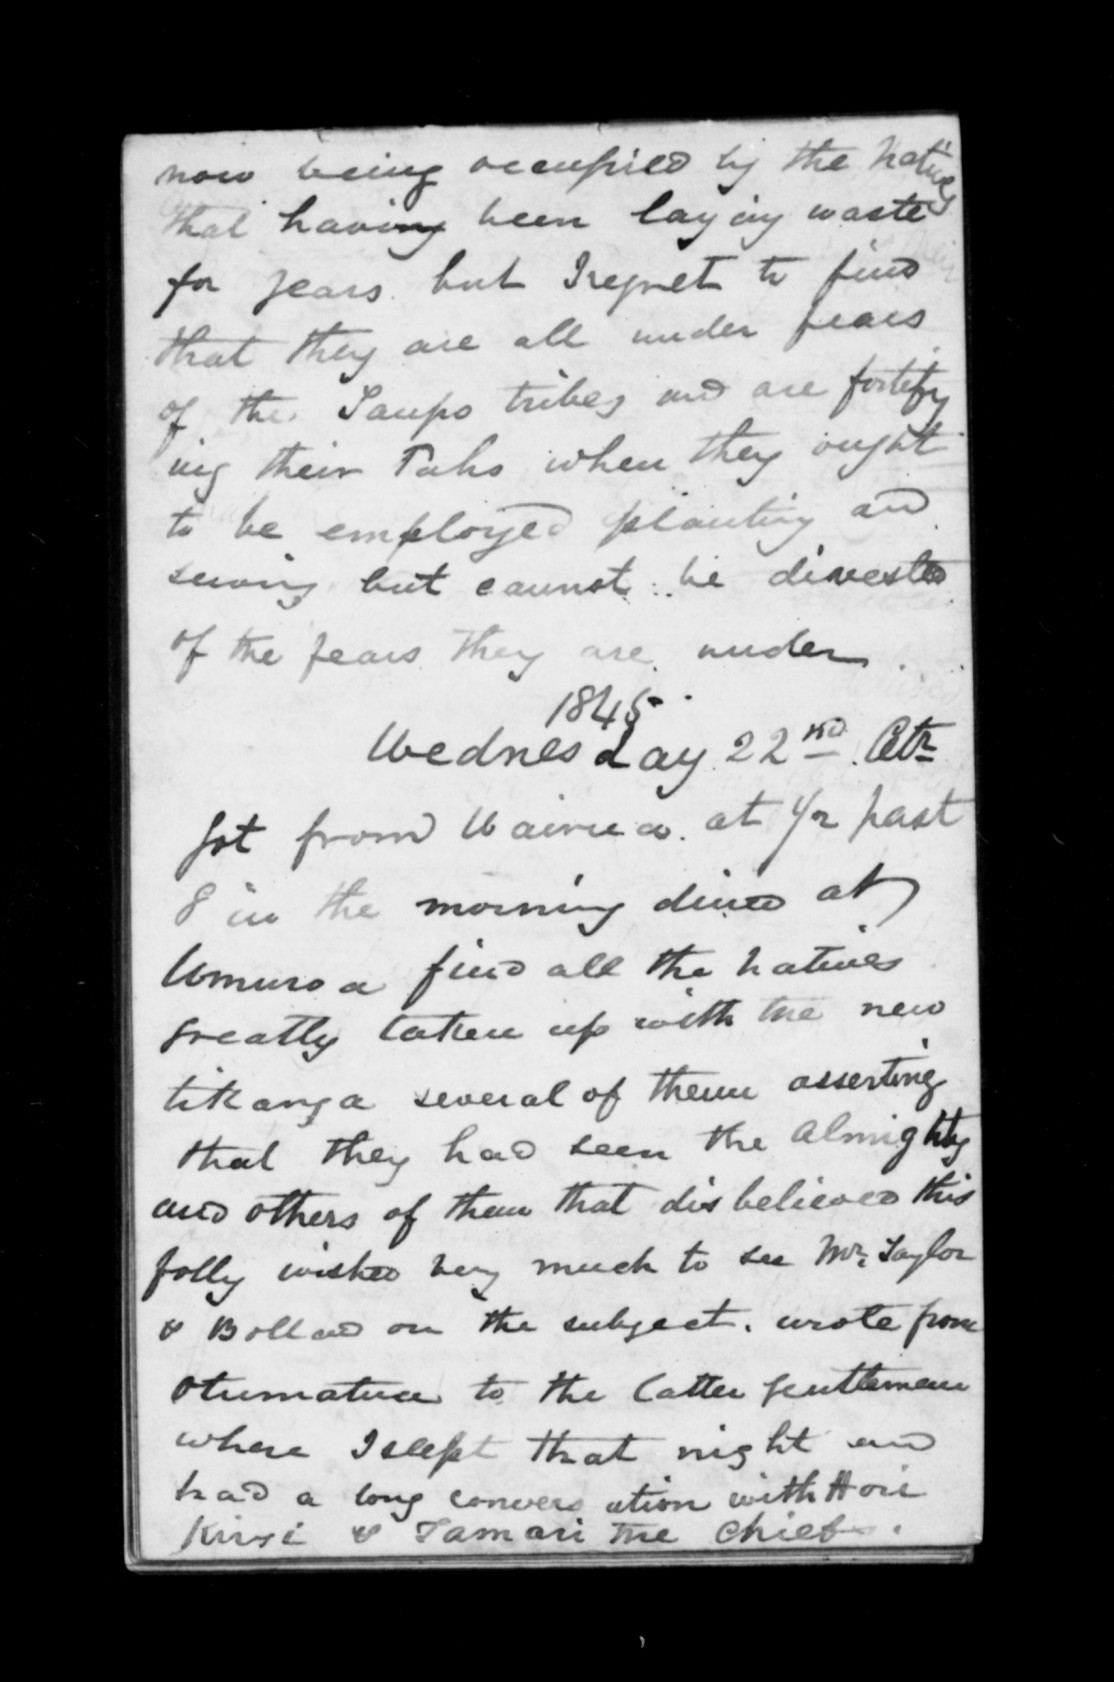 now being occupied by the Natives
that having been laying waste
for years but I regret to find
that they are all under fears
of the Taupo tribes and are fortify
ing their Pahs when they ought
to be employed planting and
sewing but cannot be divested
of the fears they are under
1845
Wednesday 22nd Octr
Got from Wairua at 1/2 past
8 in the morning dined at
Umuroa find all the natives
greatly taken up with the new
tikanga several of them asserting
that they had seen the Almighty
and others of them that disbelieved this
folly wished very much to see Mr Taylor
& Bolland on the subject. wrote from
Otumatua to the latter gentleman
where I slept that night and
had a long conversation with Hori
Kingi & Tamati the Chiefs.